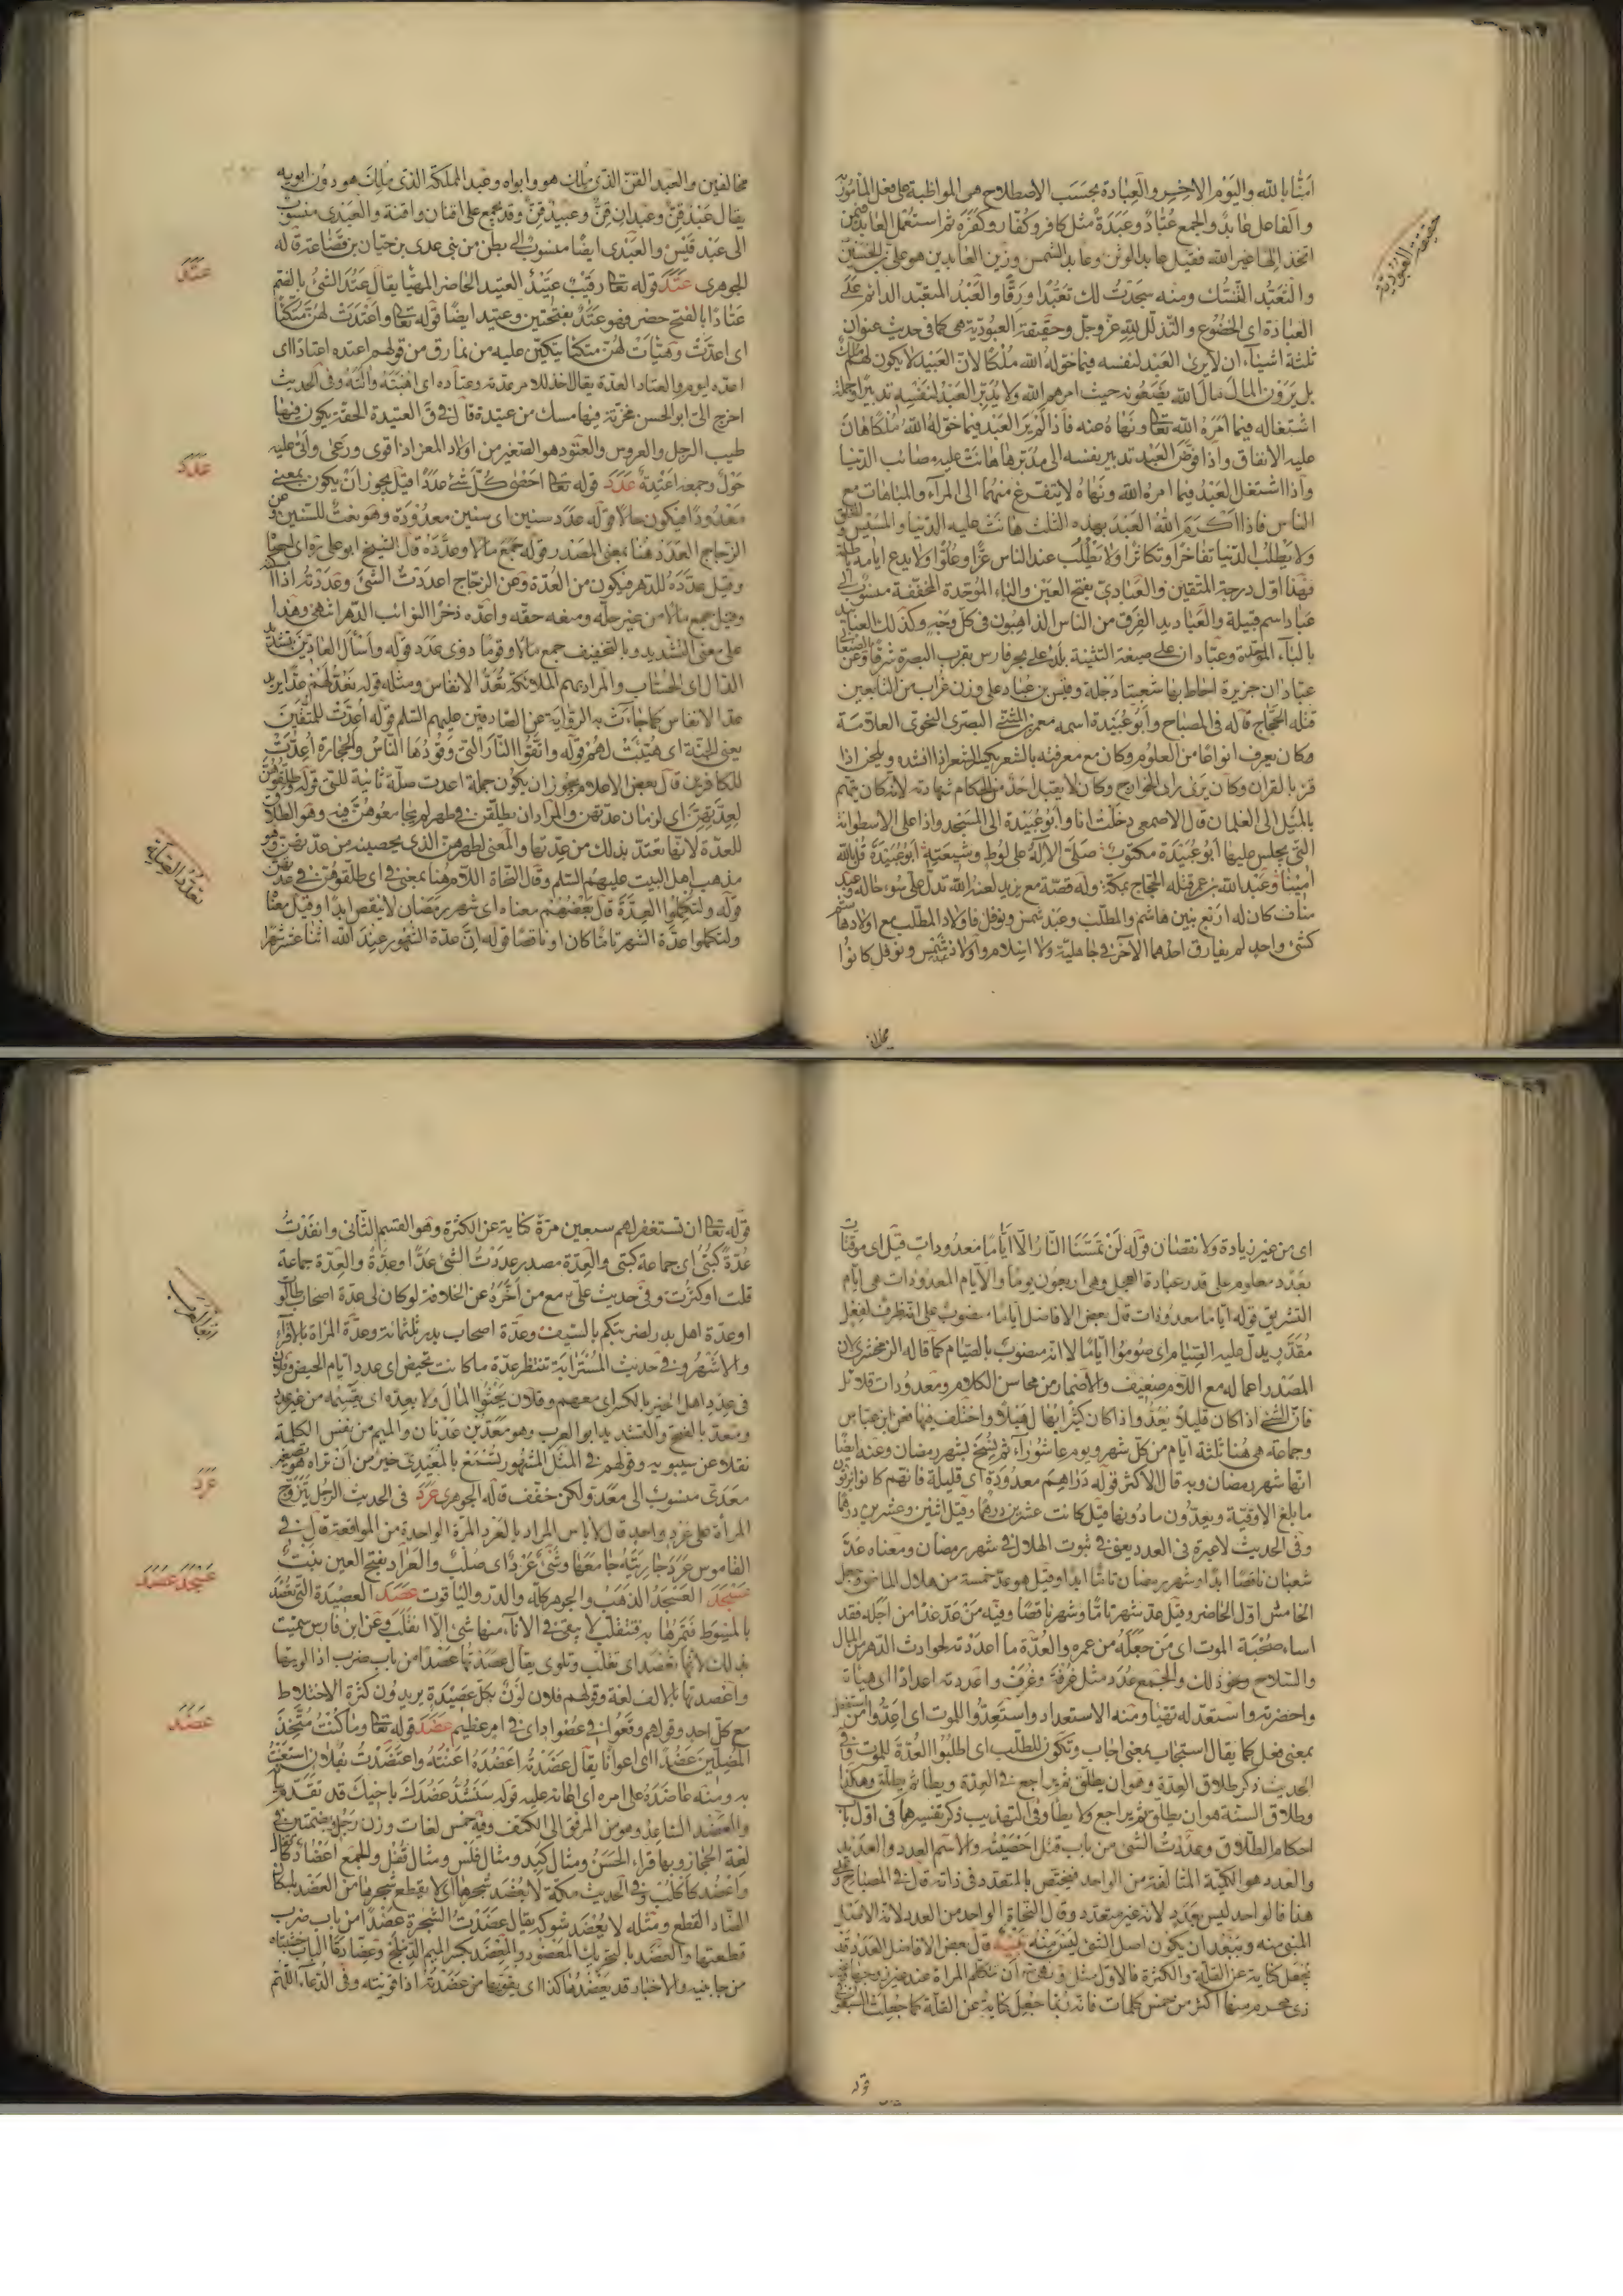 امنا بالله واليوم الاخر والعبادة بحسب الاصطلاح هى المواظبة على فعل المأمور
والفاعل عابد والجمع عبّاد وعبدة مثل كافر وكفّار وكفرة ثم استعمل العابد فيمن
اتخذ الها غير الله فقيل عابد الوثن وعابد الشمس وزين العابدين هو على بن الحسين
والتعبد التنسك ومنه سجدت لك تعبّدا ورقّا والعبد المتعبد الدائم على
العبادة اى الخضوع والتذلل لله عز وجل وحقيقة العبودية هى كما فى حديث عنوان
ثلثة اشياء ان لا يرى العبد لنفسه فيما خوله الله ملكا لان العبيد لا يكون لهم ملك
بل يرون المال مال الله يضعونه حيث امرهم الله ولا يدبر العبد لنفسه تدبيرا وجملة
اشتغاله فيما امره الله تعا ونهاه عنه فاذا لم ير العبد فيما خوله الله ملكا هان
عليه الانفاق واذا فوض العبد تدبير نفسه الى مدبرها هانت عليه مصائب الدنيا
واذا اشتغل العبد فيما امره الله ونهاه لا يتفرغ منهما الى المرآء والمباهات مع
الناس فاذا اكرم الله العبد بهذه الثلث هانت عليه الدنيا
ولا يطلب الدنيا تفاخرا وتكاثرا ولا يطلب عند الناس عزّا وعلوّا ولا يدع ايامه باطلة
فهذا اول درجة المتقين والعبادى بفتح العين والباء الموحدة المخففة منسوب الى
عباد اسم قبيلة والعباديد الفرق من الناس الذاهبون فى كل وجه وكذلك العبابيد
بالباء الموحدة وعبّادان على صيغة التثنية بلد على بحر فارس بقرب البصرة شرقا
عبّادان جزيرة احاط بها شعبتا دجلة وقيس بن عباد على وزن غراب من التابعين
قتله الحجاج قاله فى المصباح وأبو عبيدة اسمه معمر بن المثنى البصرى النحوى العلامة
وكان يعرف انواعا من العلوم وكان مع معرفته بالشعر يكسر الشعر اذا انشده ويلحن اذا
قرء بالقران وكان يرى راى الخوارج وكان لا يقبل احد من الحكام شهادته لانه كان يتهم
بالميل الى الغلمان قال الاصمعى دخلت انا وابو عبيدة الى المسجد واذا على الاسطوانة
التى يجلس عليها ابو عبيدة مكتوب صلى الاله على لوط وشيعته أبو عبيدة قل بالله
امينا وعبد الله بن عمر قتله الحجاج بمكة وله قصة مع يزيد لعنه الله تدل على سوء حاله وعبد
مناف كان له اربع بنين هاشم والمطلب وعبد شمس ونوفل فاولاد المطلب مع اولاد هاشم
كشئ واحد لم يفارق احدهما الآخر فى جاهلية ولا اسلام واولاد شمس ونوفل كانوا
حقيقة العبودية
مخالفين والعبد القنّ الذى ملك هو وابواه وعبد المملكة الذى ملك هو دون ابويه
يقال عبد قنّ وعبدان قنّ وعبيد قنّ وقد يجمع على اقنان واقنة والعبدى منسوب
الى عبد قيس والعبدى ايضا منسوب الى بطن من بنى عدى بن قضاعة قاله
الجوهرى عتد قوله تعا رقيب عتيد العتيد الحاضر المهيّا يقال عتد الشئ بالضم
عتادا بالفتح حضر فهو عتد بفتحتين وعتيد ايضا قوله تعا واعتدت لهن متكئا
اى اعدت وهيأت لهن متكئا يتكين عليه من نمارق من قولهم اعتده اعتادا اى
اعده ليوم والعتاد العدة يقال اخذ للامر عدته وعتاده اى اهبته وآلته وفى الحديث
اخرج الى ابو الحسن مخزنة فيها مسك من عتيدة قال فى ق العتيدة الحقة يكون فيها
طيب الرجل والعروس والعتود هو الصغير من اولاد المعز اذا قوى ورعى واتى عليه
حول وجمعه اعتدة عدد قوله تعا احصى كل شئ عددا قيل يجوز ان يكون بمعنى
معدودا فيكون حالا قوله عدد سنين اى سنين معدودة وهو نعت للسنين وعن
الزجاج العدد هنا بمعنى المصدر قوله جمع مالا وعدّده قال الشيخ ابو على ره اى
وقيل عدّده للدهر فيكون من العدة وعن الزجاج اعددت الشئ وعددته اذا
وقيل جمع مالا من غير حله ومنعه حقه واعده ذخرا لنوائب الدهر انتهى وهذا
على معنى التشديد وبالتخفيف جمع مالا وقوما ذوى عدد قوله واسأل العادين بتشديد
الدال اى الحساب والمراد بهم الملائكة تعد الانفاس ومثله قوله نعد لهم عدا يريد
عد الانفاس كما جاءت به الرواية عن الصادقين عليهم السلم قوله اعدت للمتقين
يعنى الجنة اى هيئت لهم قوله واتقوا النار التى وقودها الناس والحجارة اعدت
للكافرين قال بعض الاعلام يجوز ان يكون جملة اعدت صلة ثانية للتى قوله فطلقوهن
لعدتهن اى لزمان عدتهن والمراد ان يطلقن فى طهر لم يجامعوهن فيه وهو الطلاق
للعدة لانها تعتد بذلك من عدتها والمعنى لطهرهن الذى يحصينه من عدتهن وهو
مذهب اهل البيت عليهم السلم وقال النحاة اللام هنا بمعنى فى اى طلقوهن فى عدتهن
قوله ولتكملوا العدة قال بعضهم معناه اى شهر رمضان لا ينقص ابدا وقيل معناه
ولتكملوا عدة الشهر تاما كان او ناقصا قوله ان عدة الشهور عند الله اثنا عشر شهرا
عتد
عدد
اى من غير زيادة ولا نقصان قوله لن تمسنا النار الا اياما معدودات قيل اى موقتات
بعدد معلوم على قدر عبادة العجل وهى اربعون يوما والايام المعدودات هى ايام
التشريق قوله اياما معدودات قال بعض الافاضل اياما منصوب على الظرف لفعل
مقدر يدل عليه الصيام اى صوموا اياما لا انه منصوب بالصيام كما قاله الزمخشرى لان
المصدر اعماله مع اللام ضعيف والاضمار من محاسن الكلام ومعدودات قلائل
فان الشئ اذا كان قليلا يعد واذا كان كثيرا يهال هيلا واختلف فيها فعن ابن عباس
وجماعة هى هنا ثلثة ايام من كل شهر ويوم عاشوراء ثم نسخ بشهر رمضان وعنه ايضا
انها شهر رمضان وبه قال الاكثر قوله دراهم معدودة اى قليلة فانهم كانوا يزنون
ما بلغ الاوقية ويعدون ما دونها قيل كانت عشرين درهما وقيل اثنين وعشرين درهما
وفى الحديث لا عبرة فى العدد يعنى فى ثبوت الهلال فى شهر رمضان ومعناه عدّ
شعبان ناقصا ابدا وشهر رمضان تامّا ابدا وقيل هو عد خمسة من هلال الماضى وجعل
الخامس اول الحاضر وقيل عد شهر تاما وشهر ناقصا وفيه من عد غدا من اجله فقد
اساء صحبة الموت اى من جعله من عمره والعدة ما اعددته لحوادث الدهر من المال
والسلاح ونحو ذلك والجمع عدد مثل غرفة وغرف واعددته اعدادا اى هيأته
واحضرته واستعد له تهيأ ومنه الاستعداد واستعدوا للموت اى اعدوا من استفعل
بمعنى فعل كما يقال استجاب بمعنى اجاب وتكون للطلب اى اطلبوا العدة للموت وفى
الحديث ذكر طلاق العدة وهو ان يطلق ثم يراجع فى العدة ويطأ ثم يطلق وهكذا
وطلاق السنة هو ان يطلق ثم يراجع ولا يطأ وفى التهذيب ذكر تفسيرهما فى اول باب
احكام الطلاق وعددت الشئ من باب قتل احصيته والاسم العدد والعديد
والعدد هو الكمية المتالفة من الواحد فيختص بالمتعدد فى ذاته قال فى المصباح
هنا فالواحد ليس بعدد لانه غير متعدد وقال النحاة الواحد من العدد لانه الاصل
المبنى منه ويبعد ان يكون اصل الشئ ليس منه تنبيه قال بعض الافاضل العدد قد
يجعل كناية عن القلة والكثرة فالاول مثل ان تتكلم المرأة عند غير زوجها
ذى محرم منها اكثر من خمس كلمات فانه ربما جعل كناية عن القلة كما جعلت السبعين
قوله
قوله تعا ان تستغفر لهم سبعين مرة كناية عن الكثرة وهو القسم الثانى وانفذت
عدة كتب اى جماعة كتب والعدة مصدر عددت الشئ عدا وعدة والعدة جماعة
قلت او كثرت وفى حديث على ع مع من أخره عن الخلافة لو كان لى عدة اصحاب طالوت
او عدة اهل بدر لضربتكم بالسيف وعدة اصحاب بدر ثلثمائة وعدة المراة بالاقراء
والاشهر وفى حديث المسترابة تنتظر عدة ما كانت تحيض اى عدد ايام الحيض وفلان
فى عدد اهل الخير بالكسر اى معهم وفلان يحثوا المال ولا يعده اى يقسمه من غير عدد
ومعد بالفتح والتشديد ابو العرب وهو معد بن عدنان والميم من نفس الكلمة
نقلا عن سيبويه وقولهم فى المثل المشهور تسمع بالمعيدى خير من ان تراه هو تصغير
معدى منسوب الى معد ولكن خفف قاله الجوهرى عرد فى الحديث الرجل يتزوج
المرأة على عرد واحد قال لا باس المراد بالعرد المرة الواحدة من المواقعة قال فى
القاموس عرد جاريته جامعها وشئ عرد اى صلب والعراد بفتح العين نبت
عسجد العسجد الذهب والجوهر كله والدر والياقوت عصد العصيدة التى تعصد
بالمسوط فتمرها به فتنقلب لا يبقى فى الاناء منها شئ الا انقلب وعن ابن فارس سميت
بذلك لانها تعصد اى تقلب وتلوى يقال عصدتها عصدا من باب ضرب اذا لويتها
واعصدتها بالالف لغة وقولهم فلان لون بكل عصيدة يريدون كثرة الاختلاط
مع كل احد وقولهم وقعوا فى عصواد اى فى امر عظيم عضد قوله تعا وما كنت متخذ
المضلين عضدا اى اعوانا يقال عضدته اعضده اعنته واعتضدت بفلان استعنت
به ومنه عاضده على امره اى اعانه عليه قوله سنشد عضدك باخيك قد تقدم
والعضد الساعد وهو من المرفق الى الكتف وفيه خمس لغات وزن رجل وبضمتين فى
لغة الحجاز وبها قراء الحسن ومثال كبد ومثال فلس ومثال قفل والجمع اعضاد
واعضد كاكلب وفى الحديث مكة لا يعضد شجرها اى لا يقطع شجرها من العضد باسكان
الضاد القطع ومثله لا يعضد شوكه يقال عضدت الشجرة عضدا من باب ضرب
قطعتها والعضد بالتحريك المعضود والمعضد بكسر الميم الدملج وعضادتا الباب خشبتاه
من جانبيه والاخبار قد يعضدها كذا اى يقويها من عضدته اذا قويته وفى الدعاء اللهم
عرد
عسجد عصد
عضد